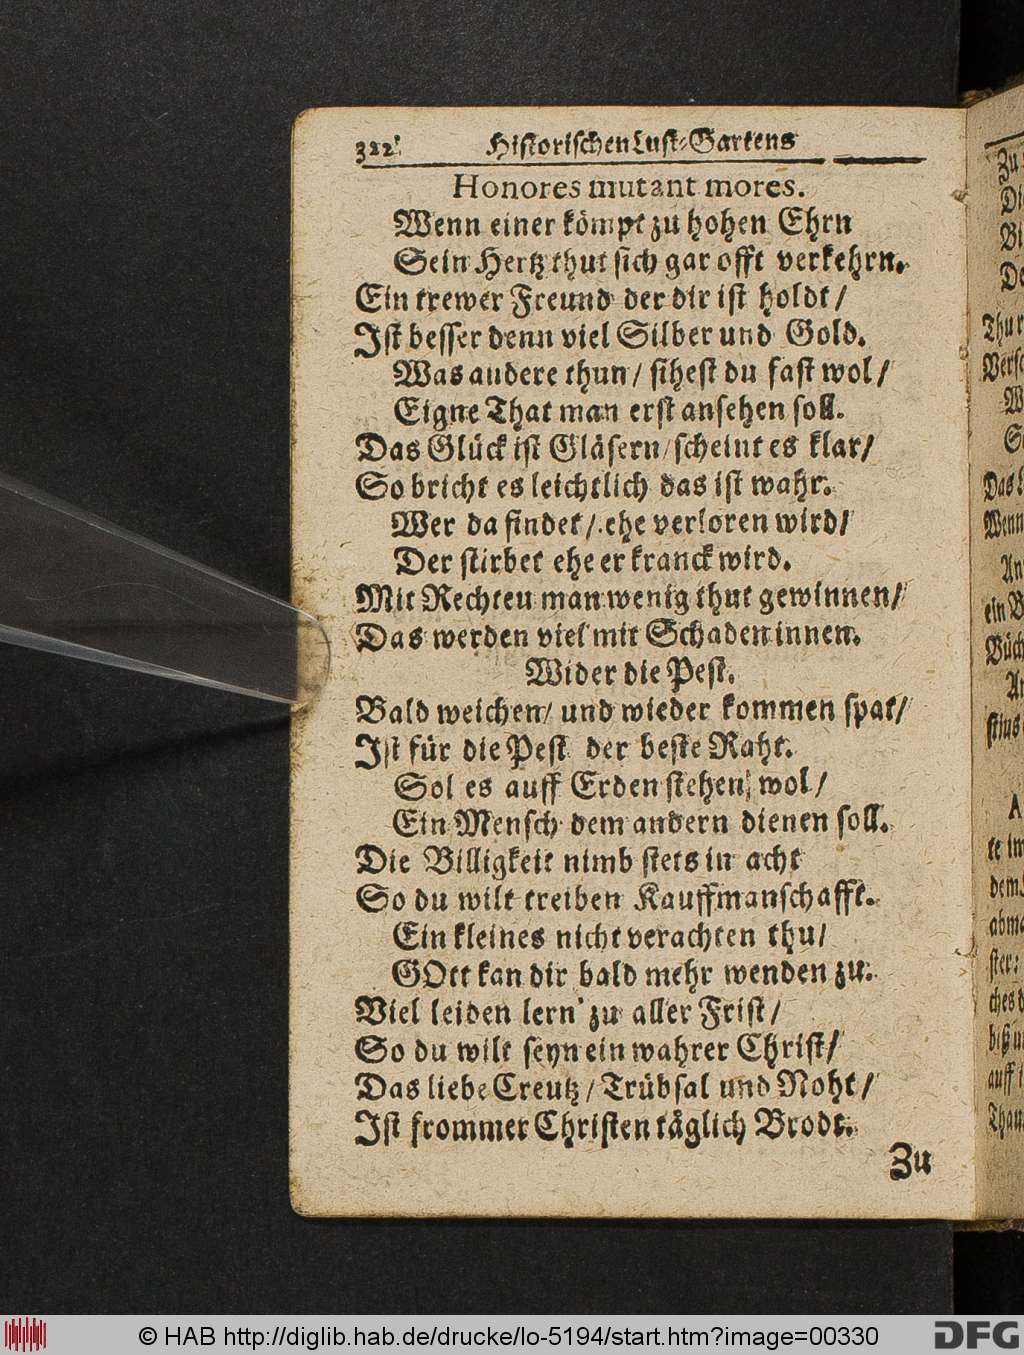 322. Historischen Lust-Gartens
Honores mutant mores.
Wenn einer kömpt zu hohen Ehrn
Sein Hertz thut sich gar offt verkehrn.
Ein trewer Freund der dir ist holdt /
Ist besser denn viel Silber und Gold.
Was andere thun / sihest du fast wol /
Eigne That man erst ansehen soll.
Das Glück ist Gläsern / scheint es klar /
So bricht es leichtlich das ist wahr.
Wer da findet / ehe verloren wird /
Der stirbet ehe er kranck wird.
Mit Rechten man wenig thut gewinnen /
Das werden viel mit Schaden innen.
Wider die Pest.
Bald weichen / und wieder kommen spat /
Ist für die Pest der beste Raht.
Sol es auff Erden stehen wol /
Ein Mensch dem andern dienen soll.
Die Billigkeit nimb stets in acht
So du wilt treiben Kauffmanschafft.
Ein kleines nicht verachten thu /
GOtt kan dir bald mehr wenden zu.
Viel leiden lern' zu aller Frist /
So du wilt seyn ein wahrer Christ /
Das liebe Creutz / Trübsal und Noht /
Ist frommer Christen täglich Brodt.
Zu
© HAB http://diglib.hab.de/drucke/lo-5194/start.htm?image=00330
DFG